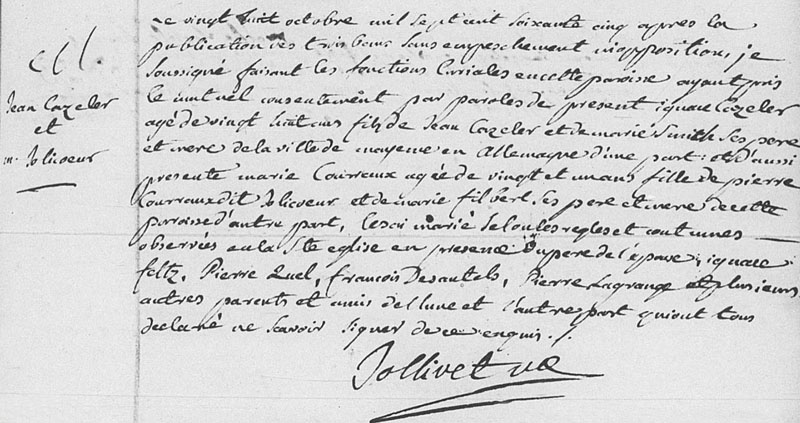 Jean Cazeler
et
m. Jolicoeur
Le vingt huit octobre mil sept cent soixante cinq apres la
publication des trois bans sans empeschement ni opposition, je
soussigné faisant les fonctions curiales en cette paroisse ayant pris
le mutuel consentement par paroles de present ignace Cazeler
agé de vingt huit ans fils de Jean Cazeler et de marie Smith ses pere
et mere de la ville de mayeme en Allemagne d'une part: et d'aussi
presente marie Courraux agée de vingt et un ans fille de pierre
Courraux dit Jolicoeur et de marie filbert ses pere et mere de cette
paroisse d'autre part, les ai marié selon les regles et coutumes
observées en la Ste eglise en presence du pere de l'epouse, ignace
feltz, Pierre Quel, francois Desautels, Pierre Lagrange et plusieurs
autres parents et amis de l'une et l'autre part qui ont tous
declaré ne scavoir signer de ce enquis ./.
Jollivet